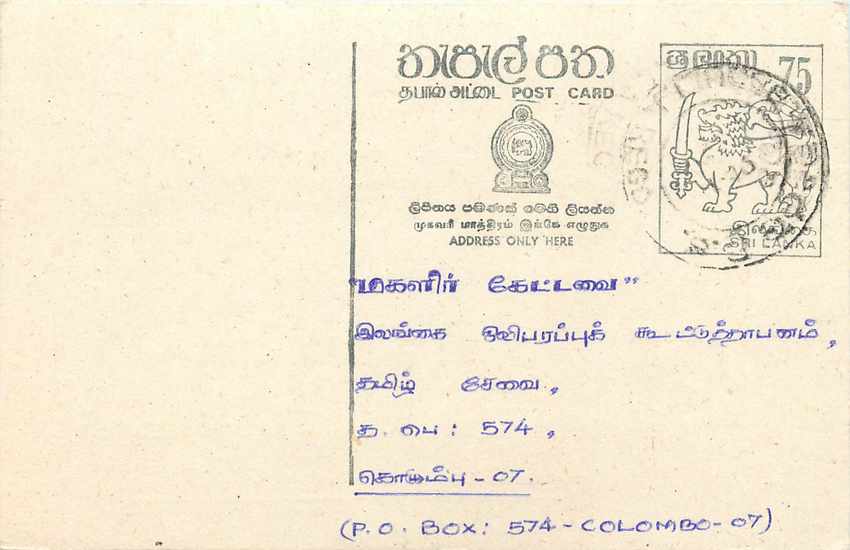 තැපැල් පත
தபால் அட்டை POST CARD
ලිපිනය පමණක් මෙහි ලියන්න
முகவரி மாத்திரம் இங்கே எழுதுக
ADDRESS ONLY HERE
ශ්‍රී ලංකා 75
இலங்கை
SRI LANKA
"மகளிர் கேட்டவை"
இலங்கை ஒலிபரப்புக் கூட்டுத்தாபனம்,
தமிழ் சேவை,
த. பெ: 574,
கொழும்பு - 07.
(P.O. BOX: 574 - COLOMBO - 07)